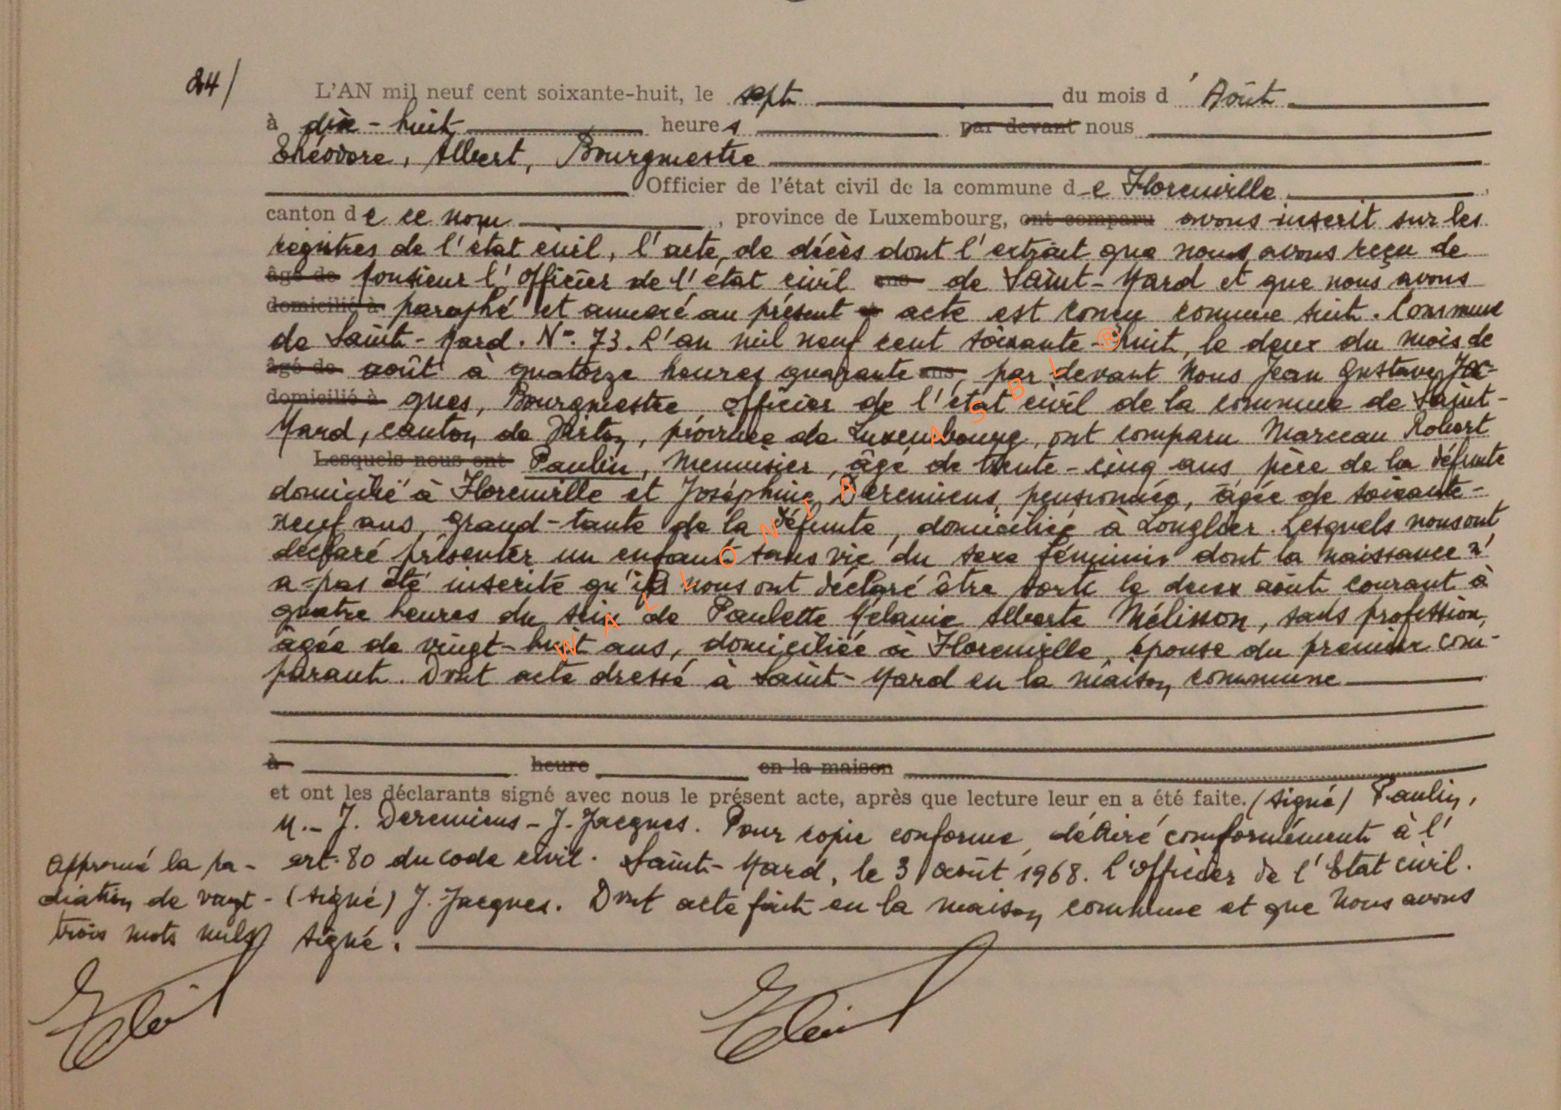 24/ L'AN mil neuf cent soixante-huit, le sept du mois d' Août
à dix-huit heures par devant nous
Théodore, Albert, Bourgmestre
Officier de l'état civil de la commune de Florenville,
canton de ce nom, province de Luxembourg, ont comparu avons inscrit sur les
registres de l'état civil, l'acte de décès dont l'extrait que nous avons reçu de
âgé de Monsieur l'Officier de l'état civil ans de Saint-Mard et que nous avons
domicilié à paraphé et annexé au présent acte est conçu comme suit. Commune
de Saint-Mard. N° 73. L'an mil neuf cent soixante-huit, le deux du mois de
âgé de août à quatorze heures quarante ans, par devant Nous Jean Gustave Jac-
domicilié à ques, Bourgmestre officier de l'état civil de la commune de Saint-
Mard, canton de Virton, province de Luxembourg, ont comparu Marceau Robert
Lesquels nous ont Paulin, menuisier, âgé de trente-cinq ans père de la défunte
domicilié à Florenville et Joséphine Deremiens, pensionnée, âgée de soixante-
neuf ans, grand-tante de la défunte, domiciliée à Longlier. Lesquels nous ont
déclaré présenter un enfant sans vie du sexe féminin dont la naissance n'
a pas été inscrite qu'ils nous ont déclaré être sorti le deux août courant à
quatre heures du sein de Paulette Mélanie Alberte Mélisson, sans profession,
âgée de vingt-huit ans, domiciliée à Florenville, épouse du premier com-
parant. Dont acte dressé à Saint-Mard en la maison commune
à heure en la maison
et ont les déclarants signé avec nous le présent acte, après que lecture leur en a été faite. (signé) Paulin,
M.- J. Deremiens - J. Jacques. Pour copie conforme délivré conformément à l'
art. 80 du code civil. Saint-Mard, le 3 août 1968. L'officier de l'Etat civil.
(signé) J. Jacques. Dont acte fait en la maison commune et que Nous avons
signé.
Approuvé la ra-
diation de vingt-
trois mots nuls
WALLONIA ASBL ®